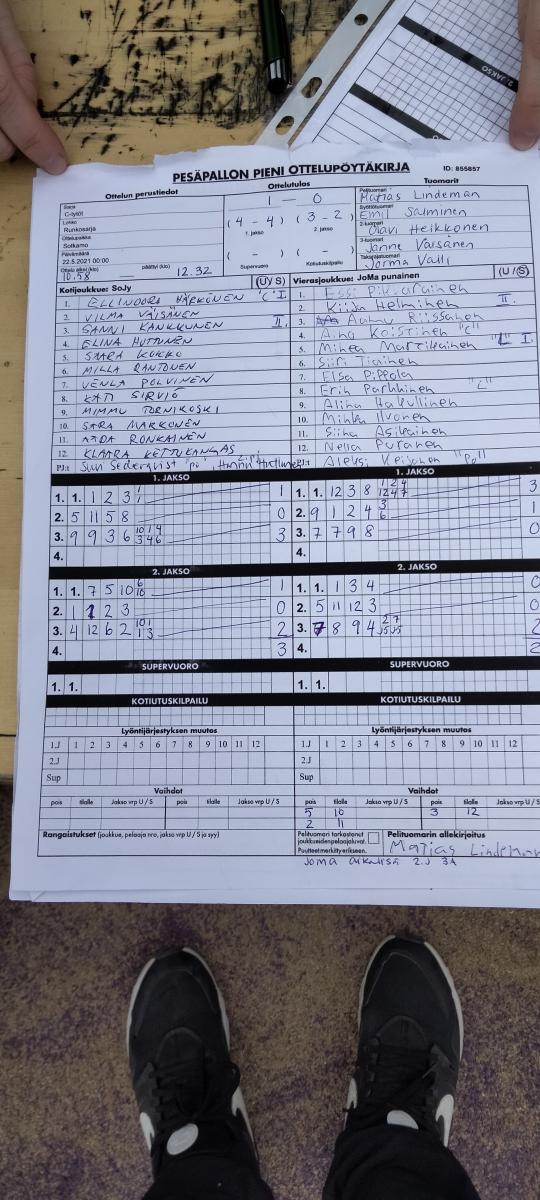 2. JAKSO
PESÄPALLON PIENI OTTELUPÖYTÄKIRJA ID: 855857
Ottelun perustiedot
Sarja
C-tytöt
Lohko
Runkosarja
Ottelupaikka
Sotkamo
Päivämäärä
22.5.2021 00:00
Ottelu alkoi (klo) päättyi (klo)
10.58 12.32
Ottelutulos
1 — 0
(4 - 4) (3 - 2)
1. jakso 2. jakso
( - ) ( - )
Supervuoro Kotiutuskilpailu
Tuomarit
Pelituomari
Matias Lindeman
Syöttötuomari
Emil Salminen
2-tuomari
Olavi Heikkonen
3-tuomari
Janne Väisänen
Takarajatuomari
Jorma Valli
Kotijoukkue: SoJy (U/ S)
1. ELLINOORA HÄRKÖNEN "C" I
2. VILMA VÄISÄNEN
3. SANNI KANKKUNEN II.
4. ELINA HUTTUNEN
5. SAARA KOKKO
6. MILLA RANTONEN
7. VENLA POLVINEN
8. KATI SIRVIÖ
9. MIMMU TORNIKOSKI
10. SARA MARKKONEN
11. AADA RONKAINEN
12. KLAARA KETTUKANGAS
PJ:t Suvi Sederqvist "pj",
Vierasjoukkue: JoMa punainen (U /S)
1. Essi Pikarainen
2. Kiija Helminen II.
3. Aamu Riissanen
4. Aina Koistinen "C"
5. Minea Martikainen "L" I.
6. Siiri Tiainen
7. Elsa Piippola
8. Erin Parhhinen "L"
9. Alina Hakulinen
10. Minka Ilvonen
11. Siina Asikainen
12. Nella Puranen
PJ:t Aleksi Keijonen "PJ"
1. JAKSO
1. 1. 1 2 3 1
2. 5 11 5 8 0
3. 9 9 3 6 10 1 4 3 4 6 3
4.
1. JAKSO
1. 1. 12 3 8 1 2 4 12 4 7 3
2. 9 1 2 4 3 6 1
3. 7 7 9 8 0
4.
2. JAKSO
1. 1. 7 5 10 6 10 1
2. 1 1 2 3 0
3. 4 12 6 2 10 1 1 3 2
4. 3
2. JAKSO
1. 1. 1 3 4 0
2. 5 11 12 3 0
3. 7 8 9 4 2
4. 2
SUPERVUORO SUPERVUORO
1. 1. 1. 1.
KOTIUTUSKILPAILU KOTIUTUSKILPAILU
Lyöntijärjestyksen muutos Lyöntijärjestyksen muutos
1.J 1 2 3 4 5 6 7 8 9 10 11 12 1.J 1 2 3 4 5 6 7 8 9 10 11 12
2.J 2.J
Sup Sup
Vaihdot Vaihdot
pois tilalle Jakso vrp U / S pois tilalle Jakso vrp U / S pois tilalle Jakso vrp U / S pois tilalle Jakso vrp U / S
5 10 3 12
2 11
Rangaistukset (joukkue, pelaaja nro, jakso vrp U / S ja syy)
Pelituomari tarkastanut
joukkueiden pelaajaluvat.
Puutteet merkitty erikseen.
Pelituomarin allekirjoitus
Matias Lindeman
Joma aikalisä 2.J 3A